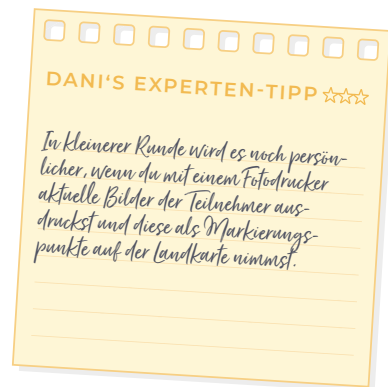 DANI'S EXPERTEN-TIPP
In kleinerer Runde wird es noch persön-
licher, wenn du mit einem Fotodrucker
aktuelle Bilder der Teilnehmer aus-
druckst und diese als Markierungs-
punkte auf der Landkarte nimmst.